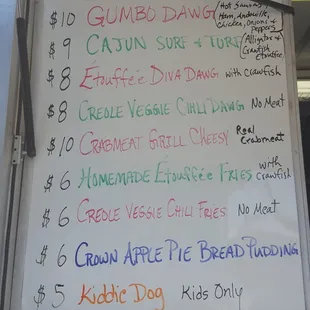 $10 GUMBO DAWG (Hot Sausage, Ham, Andouille, Chicken, Onions & Peppers)
$9 CAJUN SURF & TURF (Alligator & Crawfish Étouffée
$8 Étouffée DIVA DAWG with CRAWfish
$8 CREOLE VEGGIE CHILI DAWG No MEAT
$10 CRABMEAT GRILL CHEESY Real Crabmeat
$6 HOMEMADE Étouffée FRIES with CRAWfish
$6 CREOLE VEGGIE CHILI FRIES No MEAT
$6 CROWN APPLE PIE BREAD PUDDING
$5 Kiddie Dog Kids Only